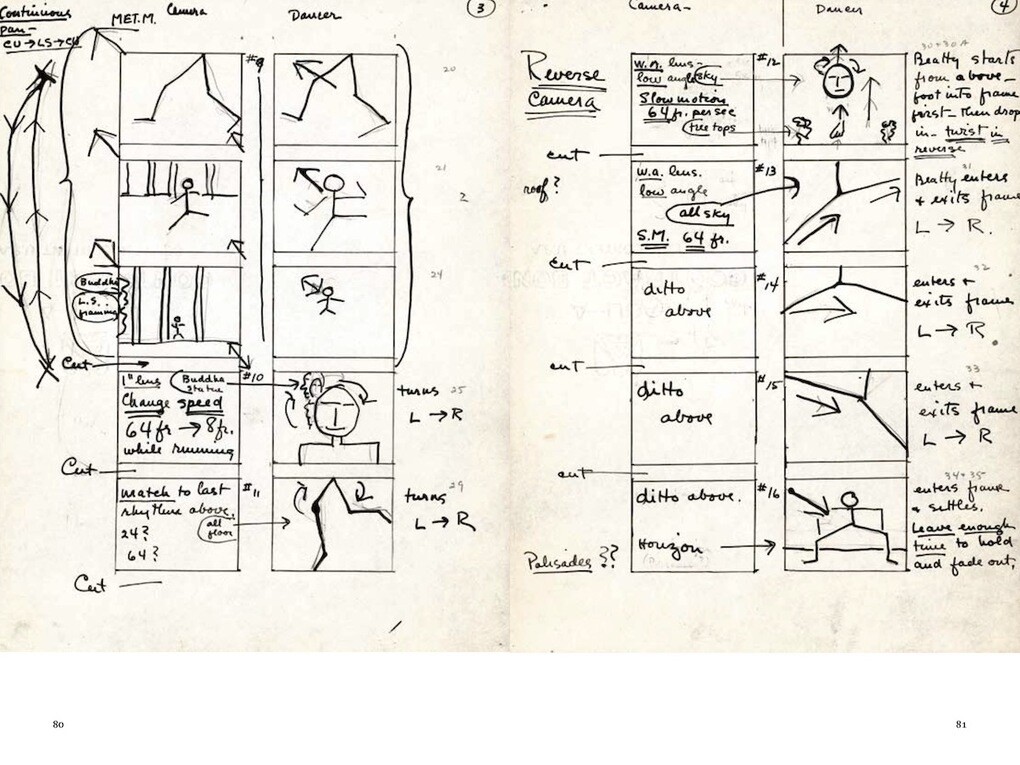 Continuous
pan—
CU→LS→CU
MET. M. Camera
Dancer
3
#9
20
21
2
Buddha
L.S.
framing
24
Cut
#10
1" lens
Buddha
statue
Change speed
64 fr → 8 fr.
while running
turns 25
L → R
Cut
#11
match to last
rhythm above.
24?
64?
all
floor
turns 29
L → R
Cut
80
Camera—
Dancer
4
Reverse
Camera
#12
w.a. lens—
low angle
sky
Slow motion
64 fr. per sec
tree tops
30+30A
Beatty starts
from above—
foot into frame
first—then drop
in—twist in
reverse
cut
roof?
#13
w.a. lens.
low angle
all sky
S.M. 64 fr.
31
Beatty enters
+ exits frame
L → R.
cut
#14
ditto
above
32
enters +
exits frame
L → R
cut
#15
ditto
above
33
enters +
exits frame
L → R
cut
#16
ditto above.
Horizon
Palisades ??
34+35
enters frame
+ settles.
Leave enough
time to hold
and fade out.
81